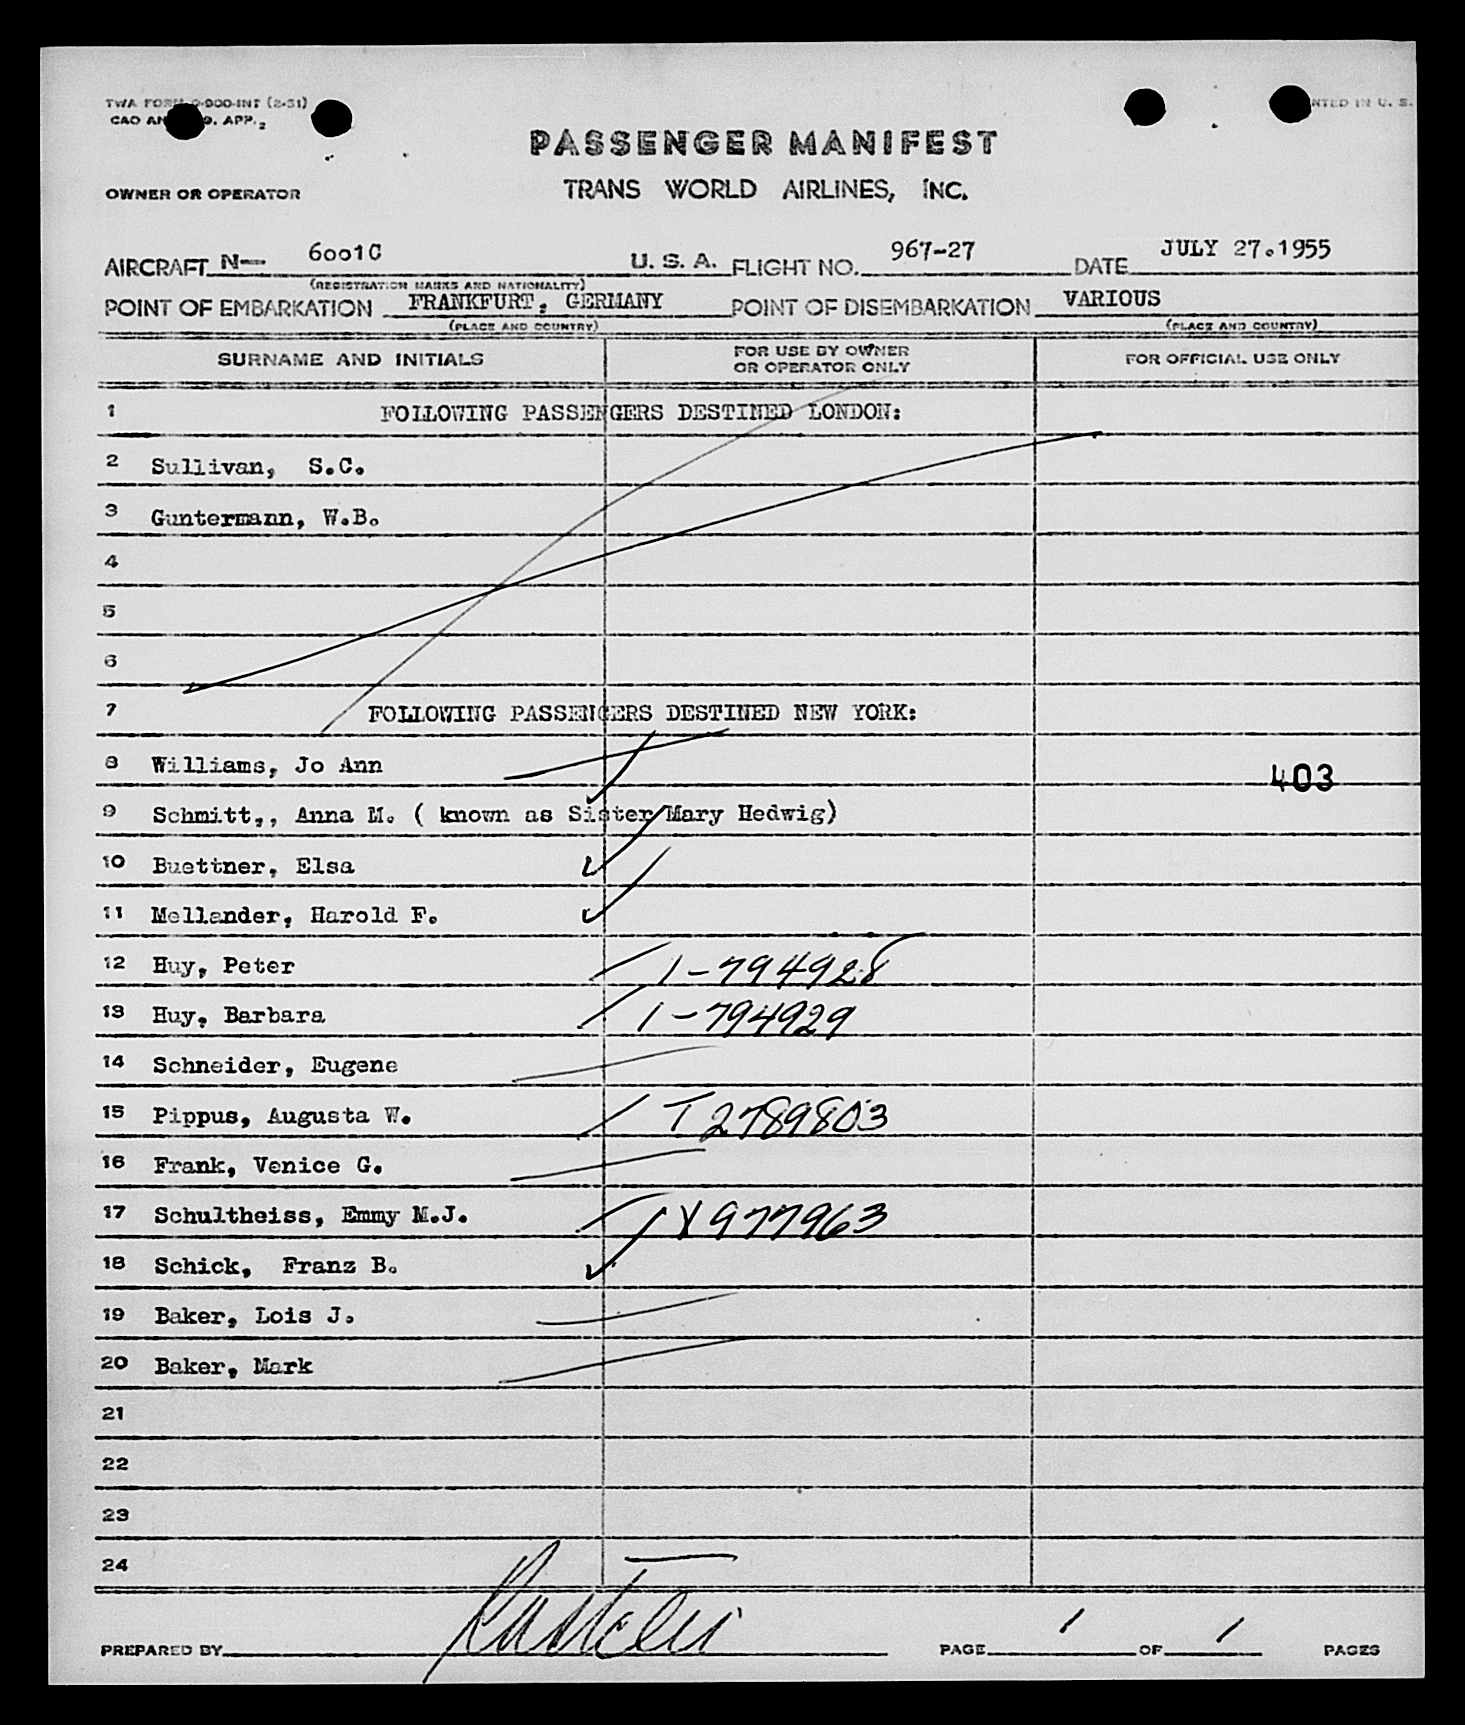 TWA FORM O-900-INT (2-51)
CAO AN 9. APP. 2
NTED IN U. S.
PASSENGER MANIFEST
OWNER OR OPERATOR
TRANS WORLD AIRLINES, INC.
AIRCRAFT N— 6001C U. S. A. FLIGHT NO. 967-27 DATE JULY 27.1955
(REGISTRATION MARKS AND NATIONALITY)
POINT OF EMBARKATION FRANKFURT, GERMANY POINT OF DISEMBARKATION VARIOUS
(PLACE AND COUNTRY) (PLACE AND COUNTRY)
SURNAME AND INITIALS FOR USE BY OWNER OR OPERATOR ONLY FOR OFFICIAL USE ONLY
1 FOLLOWING PASSENGERS DESTINED LONDON:
2 Sullivan, S.C.
3 Guntermann, W.B.
4
5
6
7 FOLLOWING PASSENGERS DESTINED NEW YORK:
8 Williams, Jo Ann 403
9 Schmitt,, Anna M. ( known as Sister Mary Hedwig)
10 Buettner, Elsa
11 Mellander, Harold F.
12 Huy, Peter 1-794928
13 Huy, Barbara 1-794929
14 Schneider, Eugene
15 Pippus, Augusta W. T 2789803
16 Frank, Venice G.
17 Schultheiss, Emmy M.J. Y977963
18 Schick, Franz B.
19 Baker, Lois J.
20 Baker, Mark
21
22
23
24
PREPARED BY PAGE 1 OF 1 PAGES